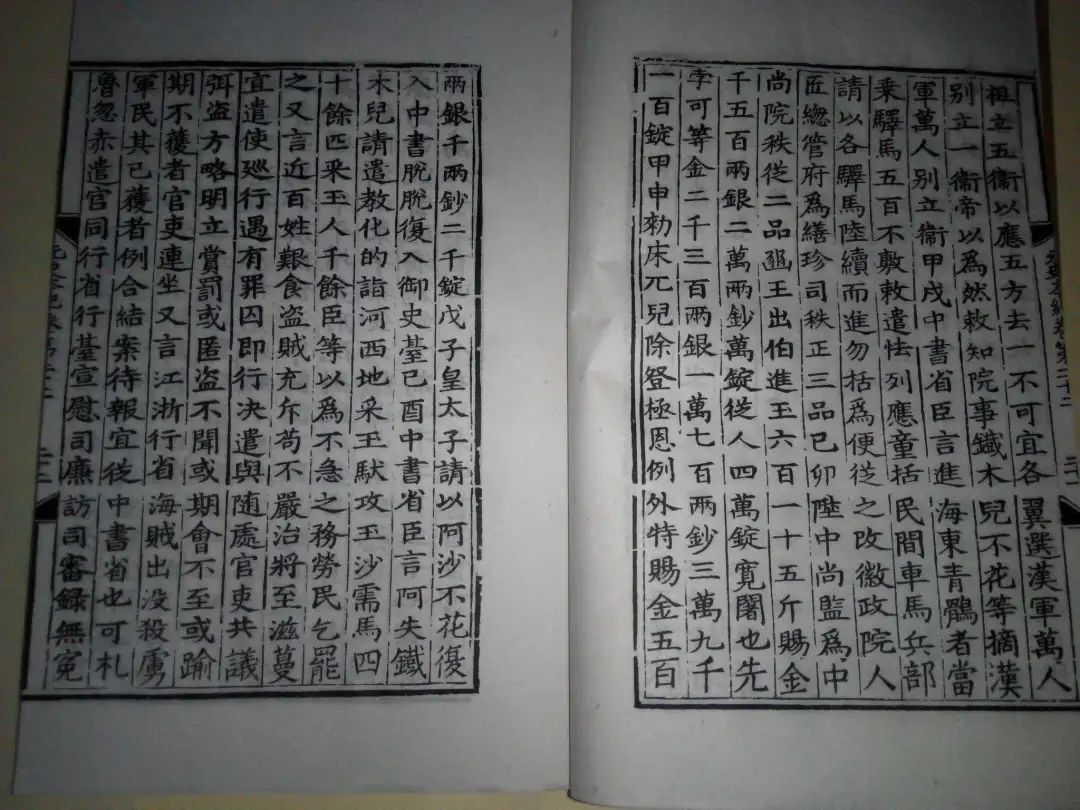 祖立五衛以應五方去一不可宜各翼選漢軍萬人
别立一衞帝以爲然敕知院事鐵木兒不花等摘漢
軍萬人别立衞甲戌中書省臣言進海東青鶻者當
乘驛馬五百不敷敕遣怯列應童括民間車馬兵部
請以各驛馬陸續而進勿括爲便從之改徽政院人
匠總管府爲繕珍司秩正三品己卯陞中尚監爲中
尚院秩從二品越王出伯進玉六百一十五斤賜金
千五百兩銀二萬兩鈔萬錠從人四萬錠寬闍也先
孛可等金二千三百兩銀一萬七百兩鈔三萬九千
一百錠甲申勑床兀兒除登極恩例外特賜金五百
兩銀千兩鈔二千錠戊子皇太子請以阿沙不花復
入中書脫脫復入御史臺己酉中書省臣言阿失鐵
木兒請遣教化的詣河西地采玉馱攻玉沙需馬四
十餘匹采玉人千餘臣等以爲不急之務勞民乞罷
之又言近百姓艱食盗賊充斥苟不嚴治將至滋蔓
宜遣使廵行遇有罪囚即行决遣與随處官吏共議
弭盗方略明立賞罰或匿盗不聞或期會不至或踰
期不獲者官吏連坐又言江浙行省海賊出没殺虜
軍民其已獲者例合結案待報宜從中書省也可札
魯忽赤遣官同行省行臺宣慰司廉訪司審録無寃